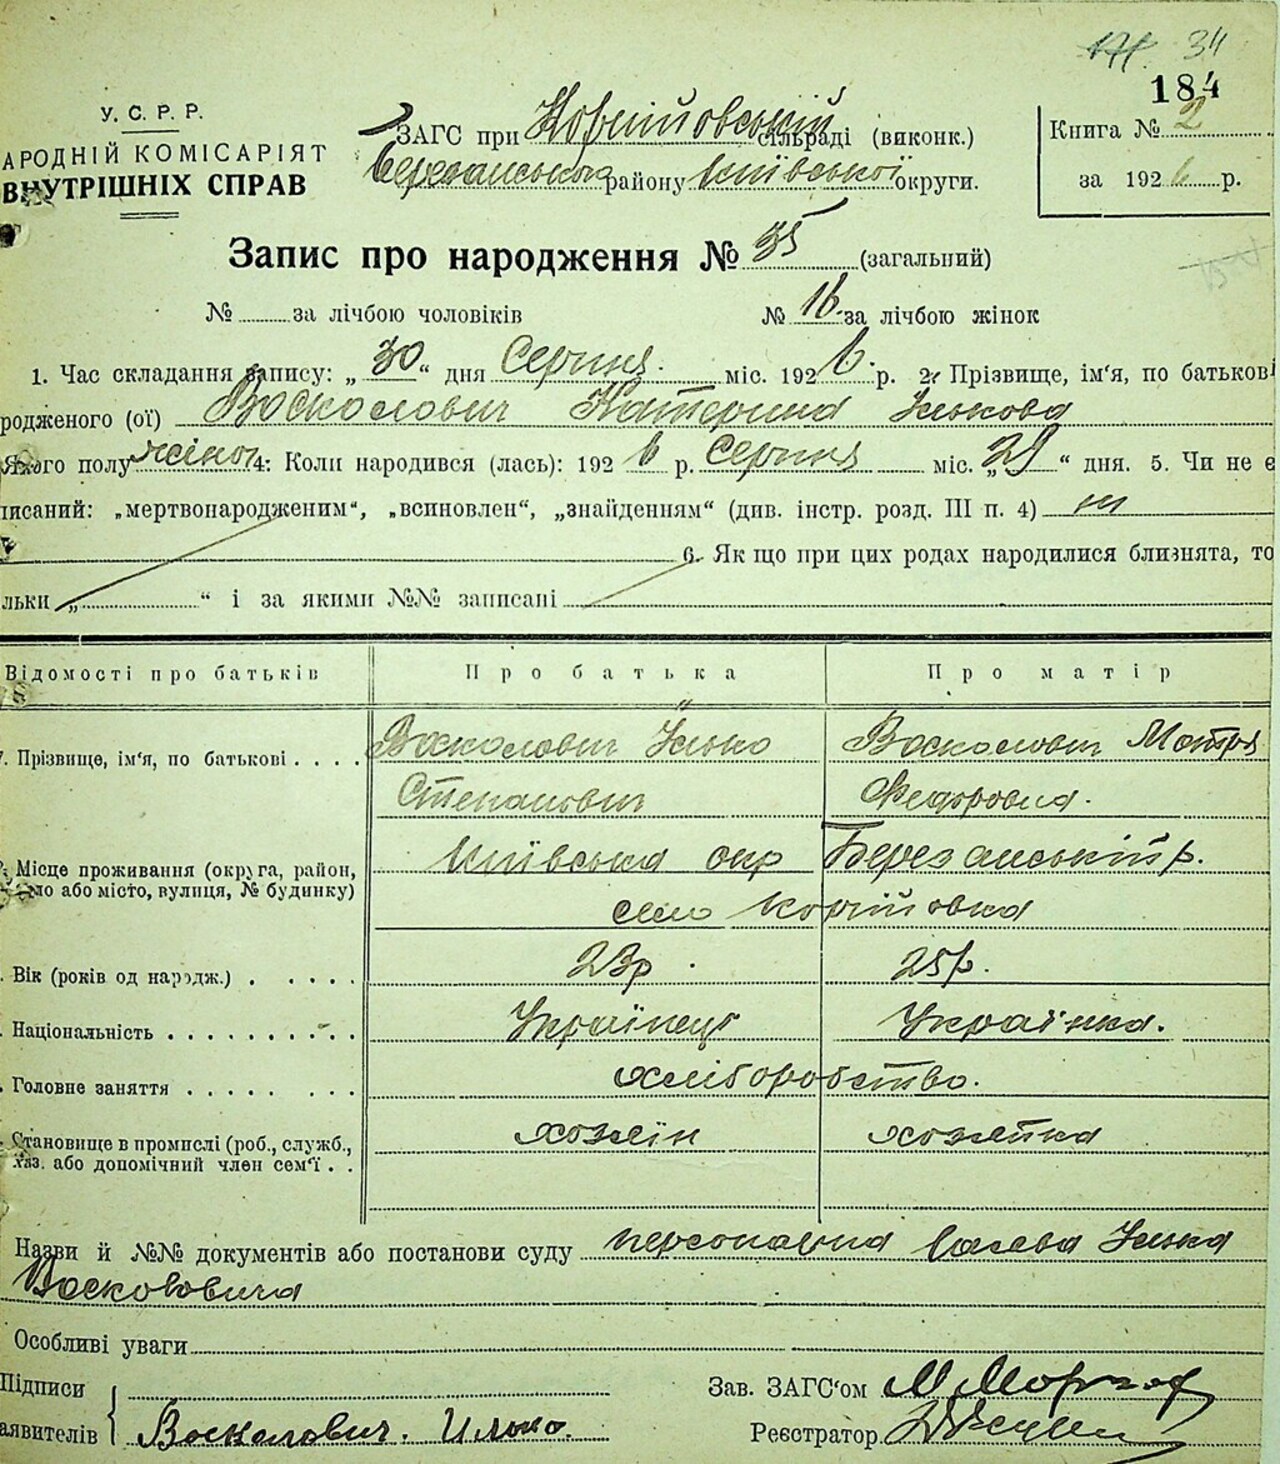 34
184
У. С. Р. Р.
АРОДНІЙ КОМІСАРІЯТ
ВНУТРІШНІХ СПРАВ
ЗАГС при Корніївській сільраді (виконк.)
Березанського району Київської округи.
Книга № 2
за 1926 р.
Запис про народження № 35 (загальний)
№ за лічбою чоловіків
№ 16 за лічбою жінок
1. Час складання запису: „ 30 “ дня Серпня міс. 1926 р. 2. Прізвище, ім'я, по батькові
родженого (ої) Восколович Катерина Ількова
Якого полу жіноч 4: Коли народився (лась): 1926 р. Серпня міс. „ 29 “ дня. 5. Чи не є
писаний: „мертвонародженим“, „всиновлен“, „знайденням“ (див. інстр. розд. III п. 4)
6. Як що при цих родах народилися близнята, то
льки „ “ і за якими №№ записані
Відомості про батьків
Про батька
Про матір
7. Прізвище, ім'я, по батькові . . . .
Восколович Ілько
Восколович Мотря
Степанович
Федоровна.
Місце проживання (округа, район,
ло або місто, вулиця, № будинку)
Київська окр Березанський р.
село Корніївка
Вік (років од народж.) . . . . .
23р.
25р.
Національність . . . . . . . . . .
Українець
Українка.
Головне заняття . . . . . . . .
хліборобство.
Становище в промислі (роб., служб.,
хаз. або допомічний член сем'ї . .
хозяїн
хозяйка
Назви й №№ документів або постанови суду персонарна заява Ілька
Восколовича
Особливі уваги
Підписи
аявителів
Воскалович. Илько.
Зав. ЗАГС'ом
Реєстратор